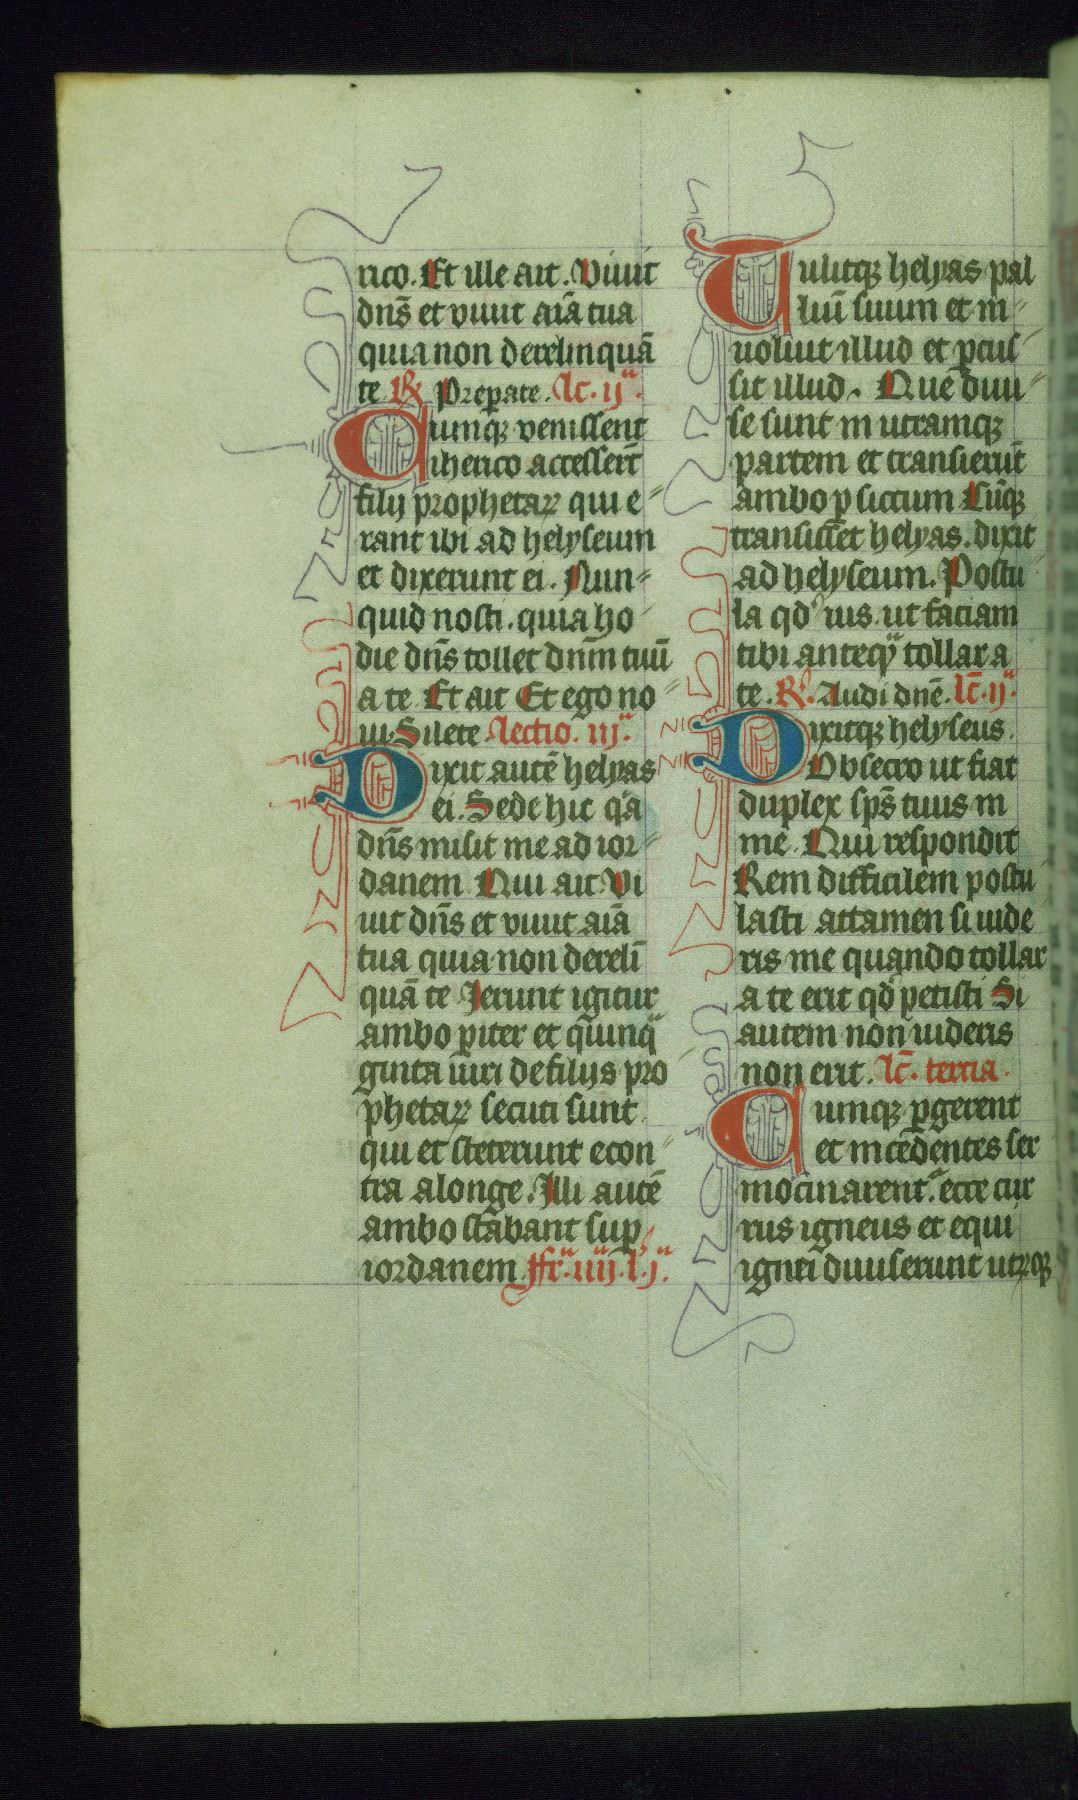 rico. Et ille ait. Viuit
dn̄s et viuit aīa tua
quia non derelinquā
te ℟ Preꝑate. lc̄. ijᵃ.
Cumqꝫ venissent
iherico accesserūt
filij prophetaꝝ qui e⸗
rant ibi ad helyseum
et dixerunt ei. Nun⸗
quid nosti. quia ho⸗
die dn̄s tollet dn̄m tuū
a te. Et ait Et ego no⸗
ui. Silete. lectio. iijᵃ.
Dixit autē helyas
ei. Sede hic qͥa
dn̄s misit me ad ior⸗
danem. Qui ait Vi
uit dn̄s et viuit aīa
tua quia non derelī
quā te Ierunt igitur
ambo ꝑiter et quinqᵃ
ginta uiri de filijs pro⸗
phetaꝝ secuti sunt
qui et steterunt econ⸗
tra a longe. Illi autē
ambo stabant suꝑ
iordanem. ffrᵃ. iiij. l. jᵃ.
Tulitqꝫ helyas pal
liuū suum et in⸗
uoluit illud et ꝑcus⸗
sit illud. Que diui⸗
se sunt in utramqꝫ
partem et transierūt
ambo ꝑ siccum Cūqꝫ
transissēt helyas. dixit
ad helyseum. Postu⸗
la qd̓ uis. ut faciam
tibi anteqᵃ tollar a
te. ℟. Audi dn̄e. lc̄. ijᵃ.
Dixitqꝫ helyseus.
Obsecro ut fiat
duplex sp̄s tuus in
me. Qui respondit
Rem difficilem postu⸗
lasti attamen si uide⸗
ris me quando tollar
a te erit qd̓ petisti Si
autem non uideris
non erit. lc̄. tercia.
Cumqꝫ ꝑgerent
et incēdentes ser
mocinarent᷑. ecce cur
rus igneus et equi
ignei diuiserunt utꝝqꝫ